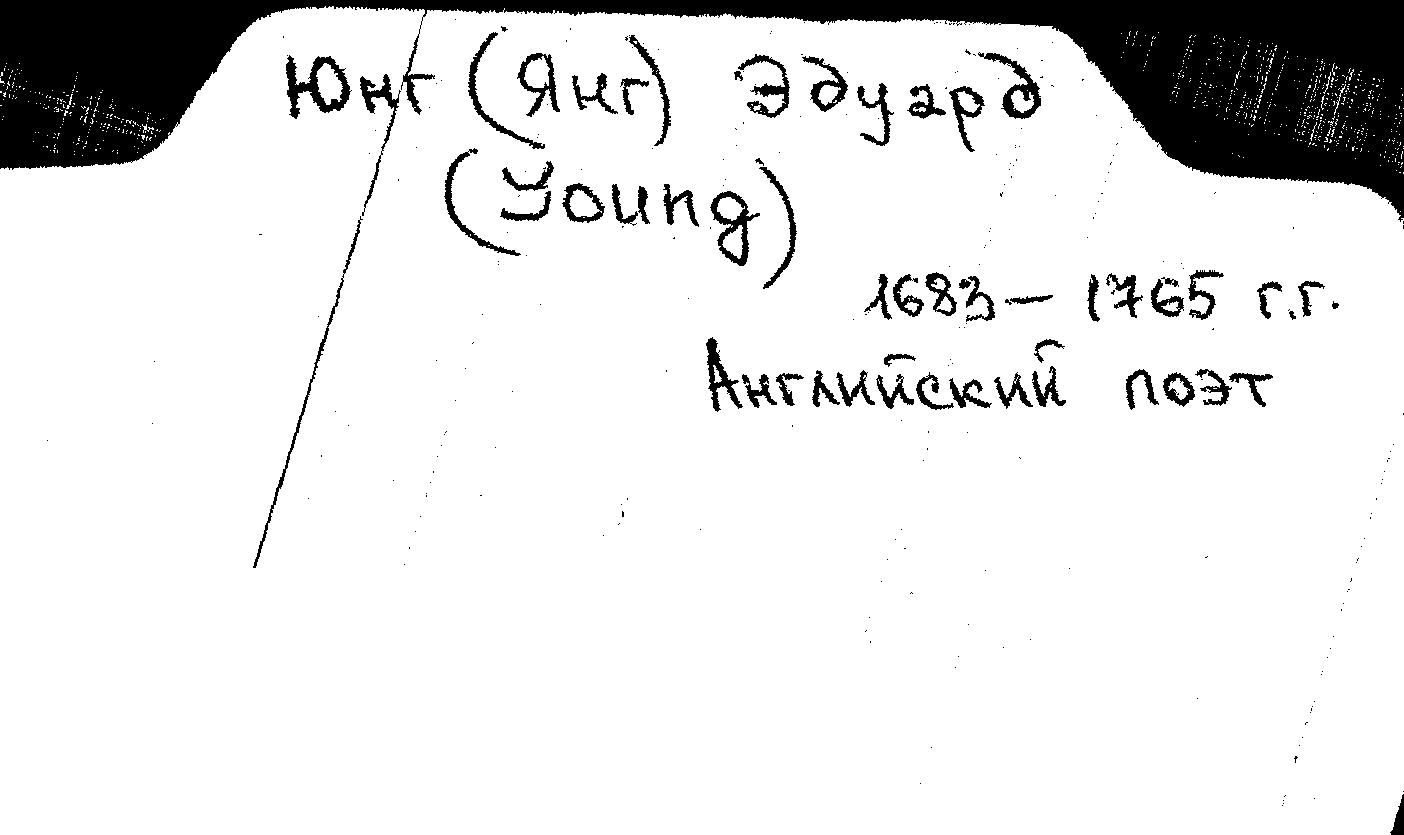 Юнг (Янг) Эдуард
(Young)
1683 – 1765 г.г.
Английский поэт